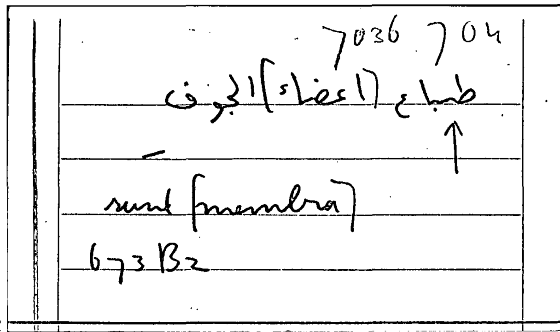 7036 704
طباع [اعضاء] الجوف
↑
–
sunt [membra]
673 B2